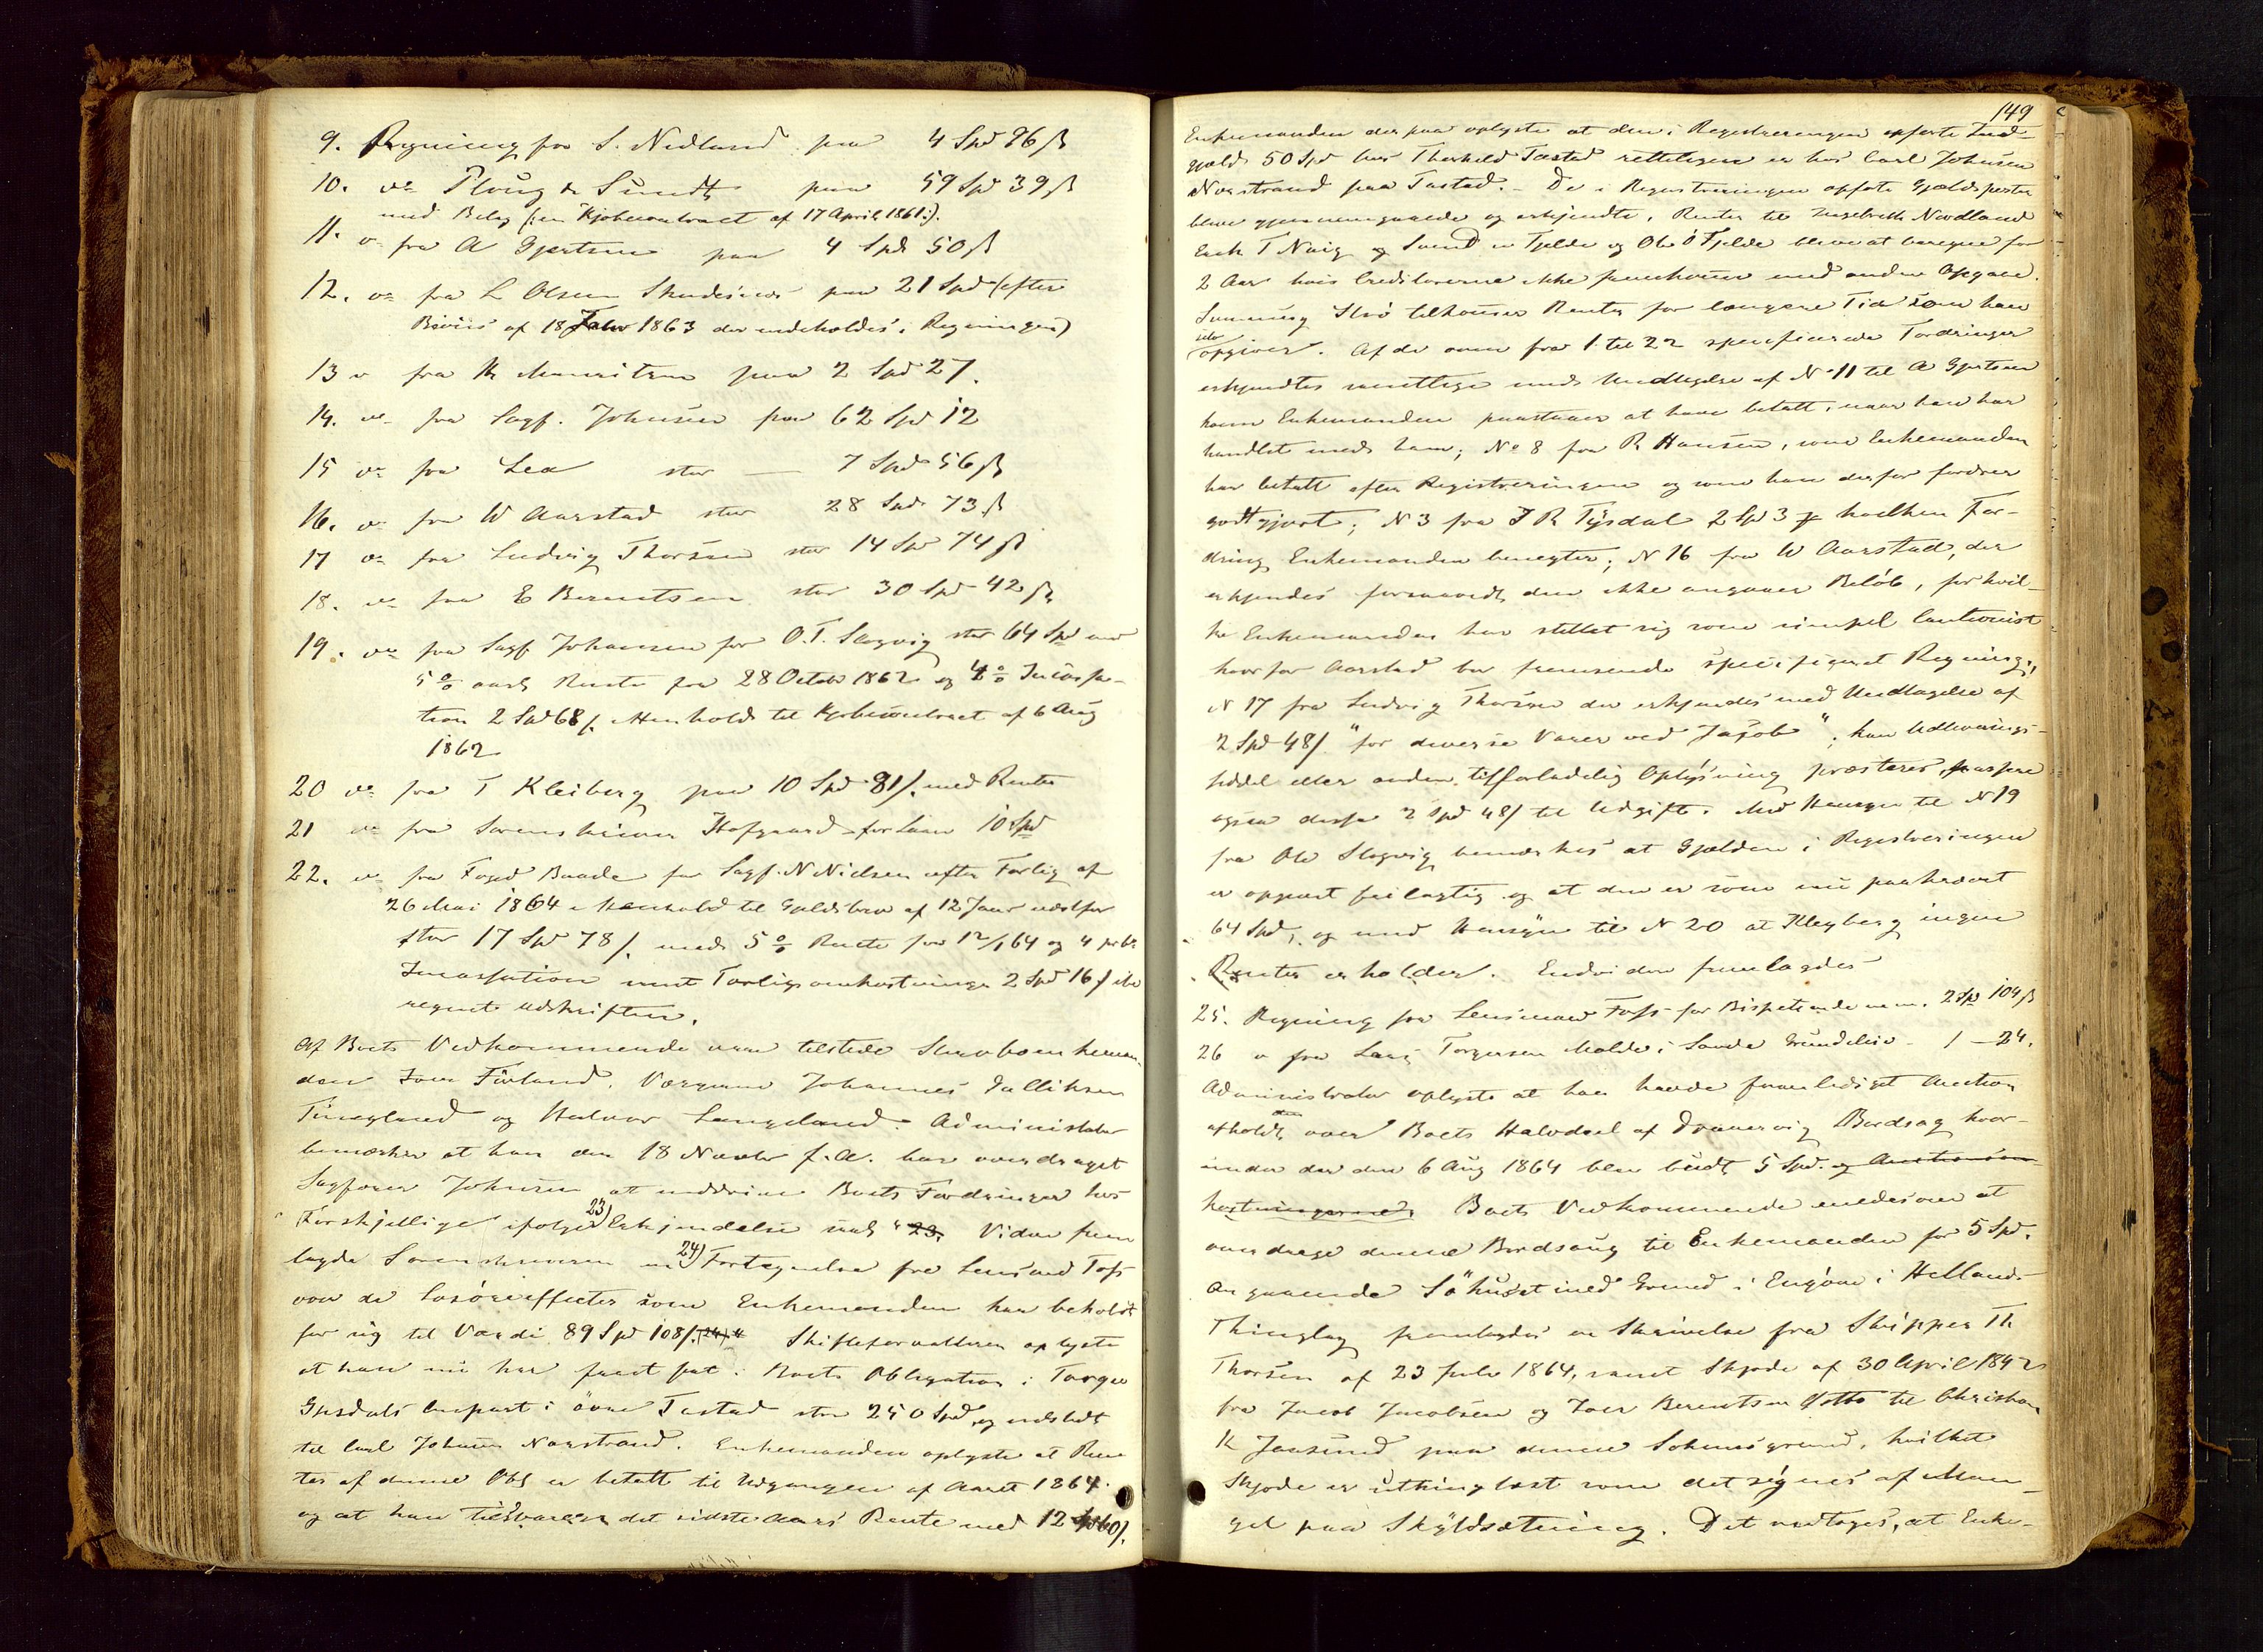 9. Regning fra S. Nedland paa 4 Spd 96 ß
10. do Ploug & Sundt paa 59 Spd 39 ß
med Bilag (: en Kjøbecontract af 17 April 1861 :).
11. do fra A Gjertsen paa 4 Spd 50 ß
12. do fra L Olsen Skudesnæs paa 21 Spd (efter
Beviis af 18 1863 der indeholdes i Regningen)
13 do fra Mauritzen paa 2 Spd 27.
14. do fra Sagf. Johnsen paa 62 Spd 12
15 do fra Lea stor — 7 Spd 56 ß
16. do fra W Aarstad stor 28 Spd 73 ß
17 do fra Ludvig Thorsen stor 14 Spd 74 ß
18. do fra E Berentsen stor 30 Spd 42 ß
19. do fra Sagf Johnsen for O. T. Slogvig stor 64 Spd med
5 % aarl Rente fra 28 Octob 1862 og 4 % Incassa-
tion 2 Spd 68 ß. i Henhold til Kjøbecontract af 6 Aug
1862
20 do fra T Kleiberg paa 10 Spd 81 ß. med Renter
21 do fra Sorenskriver Hofgaard for Laan 10 Spd
22. do fra Foged Baade for Sagf. N Nielsen efter Forlig af
26 Mai 1864 i Henhold til Gjeldsbrev af 12 Januar
stor 17 Spd 78 ß. med 5 % Rente fra 12/1 64 og 4
Incassation samt Forligsomkostninger 2 Spd 16 ß
regnet Udskriften.
Af Boets Vedkommende vare tilstede Enkeman-
den Førland. Værgerne Johannes Falliksen
Tungland og Halvor Langeland. Administrator
bemærker at han den 18 Novebr f. A. har overdraget
Sagfører Johnsen at inddrive Boets Fordringer hos
Forskjellige ifølge 23) Erkjendelse Viden frem
lagde Sorenskriveren en 24) Fortegnelse fra Lensmd Foss
over de Løsøreeffecter som Enkemanden har beholdt
for sig til Værdi 89 Spd 108 ß. Skifteforvalteren oplyste
at han nu har faaet fat i Boets Obligation i Torger
Gjesdals Anpart i øvre Tastad stor 250 Spd, og udstedt
til Carl Johnsen Norstrand. Enkemanden oplyste at Ren
ter af denne Obl er betalt til Udgangen af Aaret 1864.
og at han tilsvarer det sidste Aars Rente med 12 Spd 60 ß.
149
Enkemanden derpaa oplyste at den i Registreringen opførte Ind-
gjæld 50 Spd hos Thorkeld Tastad retteligen er hos Carl Johnsen
Norstrand paa Tastad. De i Registreringen opførte Gjældsposter
bleve gjennemgaaede og erkjendte. Renter til Ingebreth Nordland
Erik T Navig og Svend Fjelde og Ole O Fjelde bleve at beregne for
2 Aar hvis Creditorerne ikke fremkomme med anden Opgave.
tilkommer Renter for længere Tid som han
selv
opgiver. Af de oven fra 1 til 22 specificerede Fordringer
erkjendtes samtlige med Undtagelse af No 11 til A Gjertsen
hvem Enkemanden paastaaer at have betalt, naar han har
handlet med ham; No 8 fra R Hansen, som Enkemanden
har betalt efter Registreringen og som han derfor fordrer
godtgjort; N 3 fra J R Tysdal 2 Spd 3 ß hvilken For-
dring Enkemanden benegter; N 16 fra W Aarstad, der
erkjendes forsaavidt den ikke angaaer Beløb, for hvil-
ke Enkemanden har stillet sig som simpel Cautionist
hvorfor Aarstad bør fremsende specificeret Regning;
N 17 fra Ludvig Thorsen der erkjendes med Undtagelse af
2 Spd 48 ß "for diverse Varer ved Jacob"; kan Udleverings-
seddel eller anden tilforladelig Oplysning præsteres,
ogsaa disse 2 Spd 48 ß til Udgift. Med Hensyn til N 19
fra Ole Slogvig bemærkes at Gjælden i Registreringen
er opgivet feilagtig og at den er som nu paakrævet
64 Spd, og med Hensyn til N 20 at Kleyberg ingen
Renter erholder. Endvidere fremlagdes
25. Regning fra Lensmand Foss for Bispetiende m.m. 2 Spd 104 ß
26 do fra Lars Torgersen Molde i Sande Grundleie - 1 - 24.
Administrator oplyste at han havde foranlediget Auction
afholdt over Boets Halvdeel af Bordsag hvor-
under der den 6 Aug 1864 blev budt 5 Spd. og Auctionsom-
kostningerne. Boets Vedkommende enedes om at
overdrage denne Bordsaug til Enkemanden for 5 Spd.
Angaaende Söhuset med Grund i Engøen i Hetlands
Thinglag fremlagdes en Skrivelse fra Skipper Th
Thorsen af 23 Juli 1864, samt Skjøde af 30 April 1842
fra Jacob Jacobsen og Iver Berentsen til Christian
K Jaasund paa denne Søhuusgrund, hvilket
Skjøde er uthinglæst som det sýnes af Man-
gel paa Skyldsætning. Det vedtoges, at Enke-